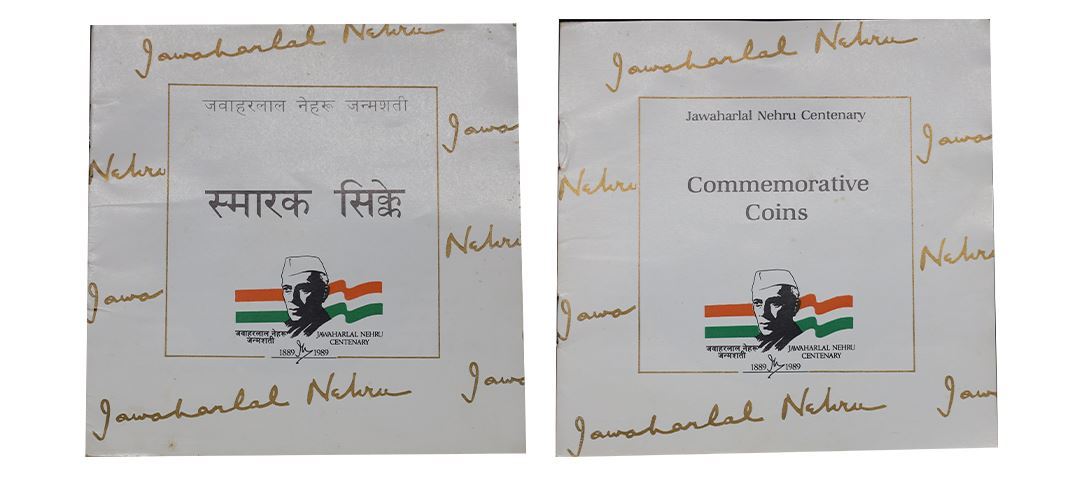 Jawaharlal Nehru
जवाहरलाल नेहरू जन्मशती
Jawa
Nehru
स्मारक सिक्के
Nehru
Jawa
जवाहरलाल नेहरू
जन्मशती
JAWAHARLAL NEHRU
CENTENARY
1889 1989
Jawa
Jawaharlal Nehru
Jawaharlal Nehru
Jawaharlal Nehru Centenary
Jawa
Nehru
Commemorative
Coins
Nehru
Jawa
जवाहरलाल नेहरू
जन्मशती
JAWAHARLAL NEHRU
CENTENARY
1889 1989
Jaw
Jawaharlal Nehru